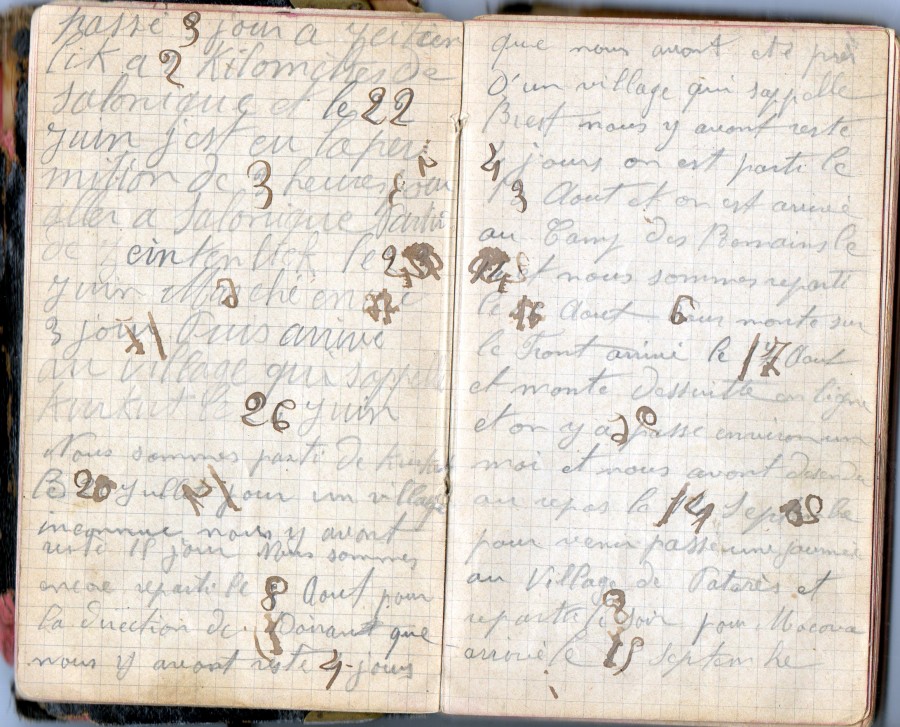 passé 3 jour a
lik a 2 Kilomètres de
Salonique et le 22
Juin j'est eu la per
mition de 3 heures pour
aller a Salonique Partir
de Zeintenlick le 23
Juin Marché encore
3 jour Puis arrivé
au village qui s'appelle
Kurkut le 26 Juin
Nous sommes parti de Kurkut
le 20 Juillet pour un village
inconnue nous y avont
resté 18 jour Nous sommes
encore reparti le 8 Aout pour
la direction de Doirant que
nous y avont resté 4 jours
que nous avont été près
D'un village qui s'appelle
Brest nous y avont resté
4 jours on est parti le
13 Aout et on est arrivé
au Camp des Romains le
14 et nous sommes reparti
le 16 Aout pour monté sur
le Front arrivé le 17 Aout
et monté dessuitte en ligne
et on y a passé environ un
moi et nous avont desendu
au repos le 14 Septembre
pour venir passé une journée
au Village de Patarès et
repartie le soir pour Macova
arrivé le 15 Septembre